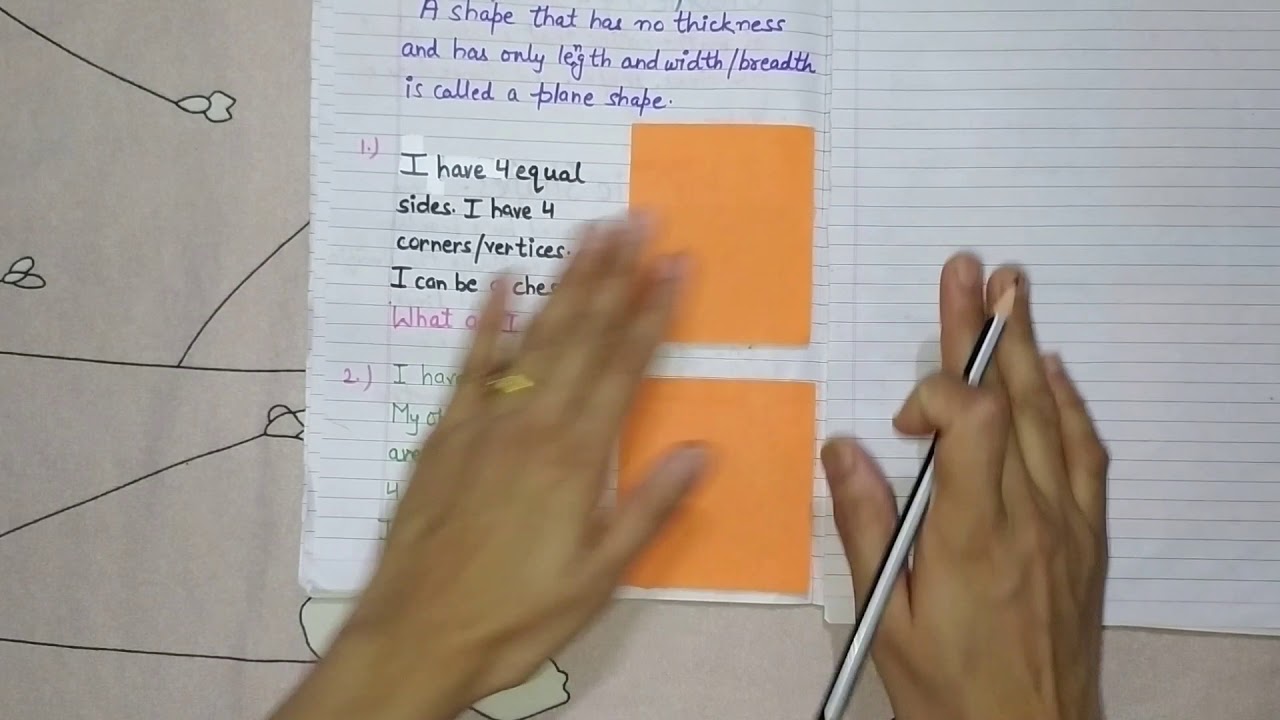 A shape that has no thickness
and has only length and width/breadth
is called a plane shape.
1.) I have 4 equal
sides. I have 4
corners/vertices.
I can be a
What I
2.) I
My
4
I